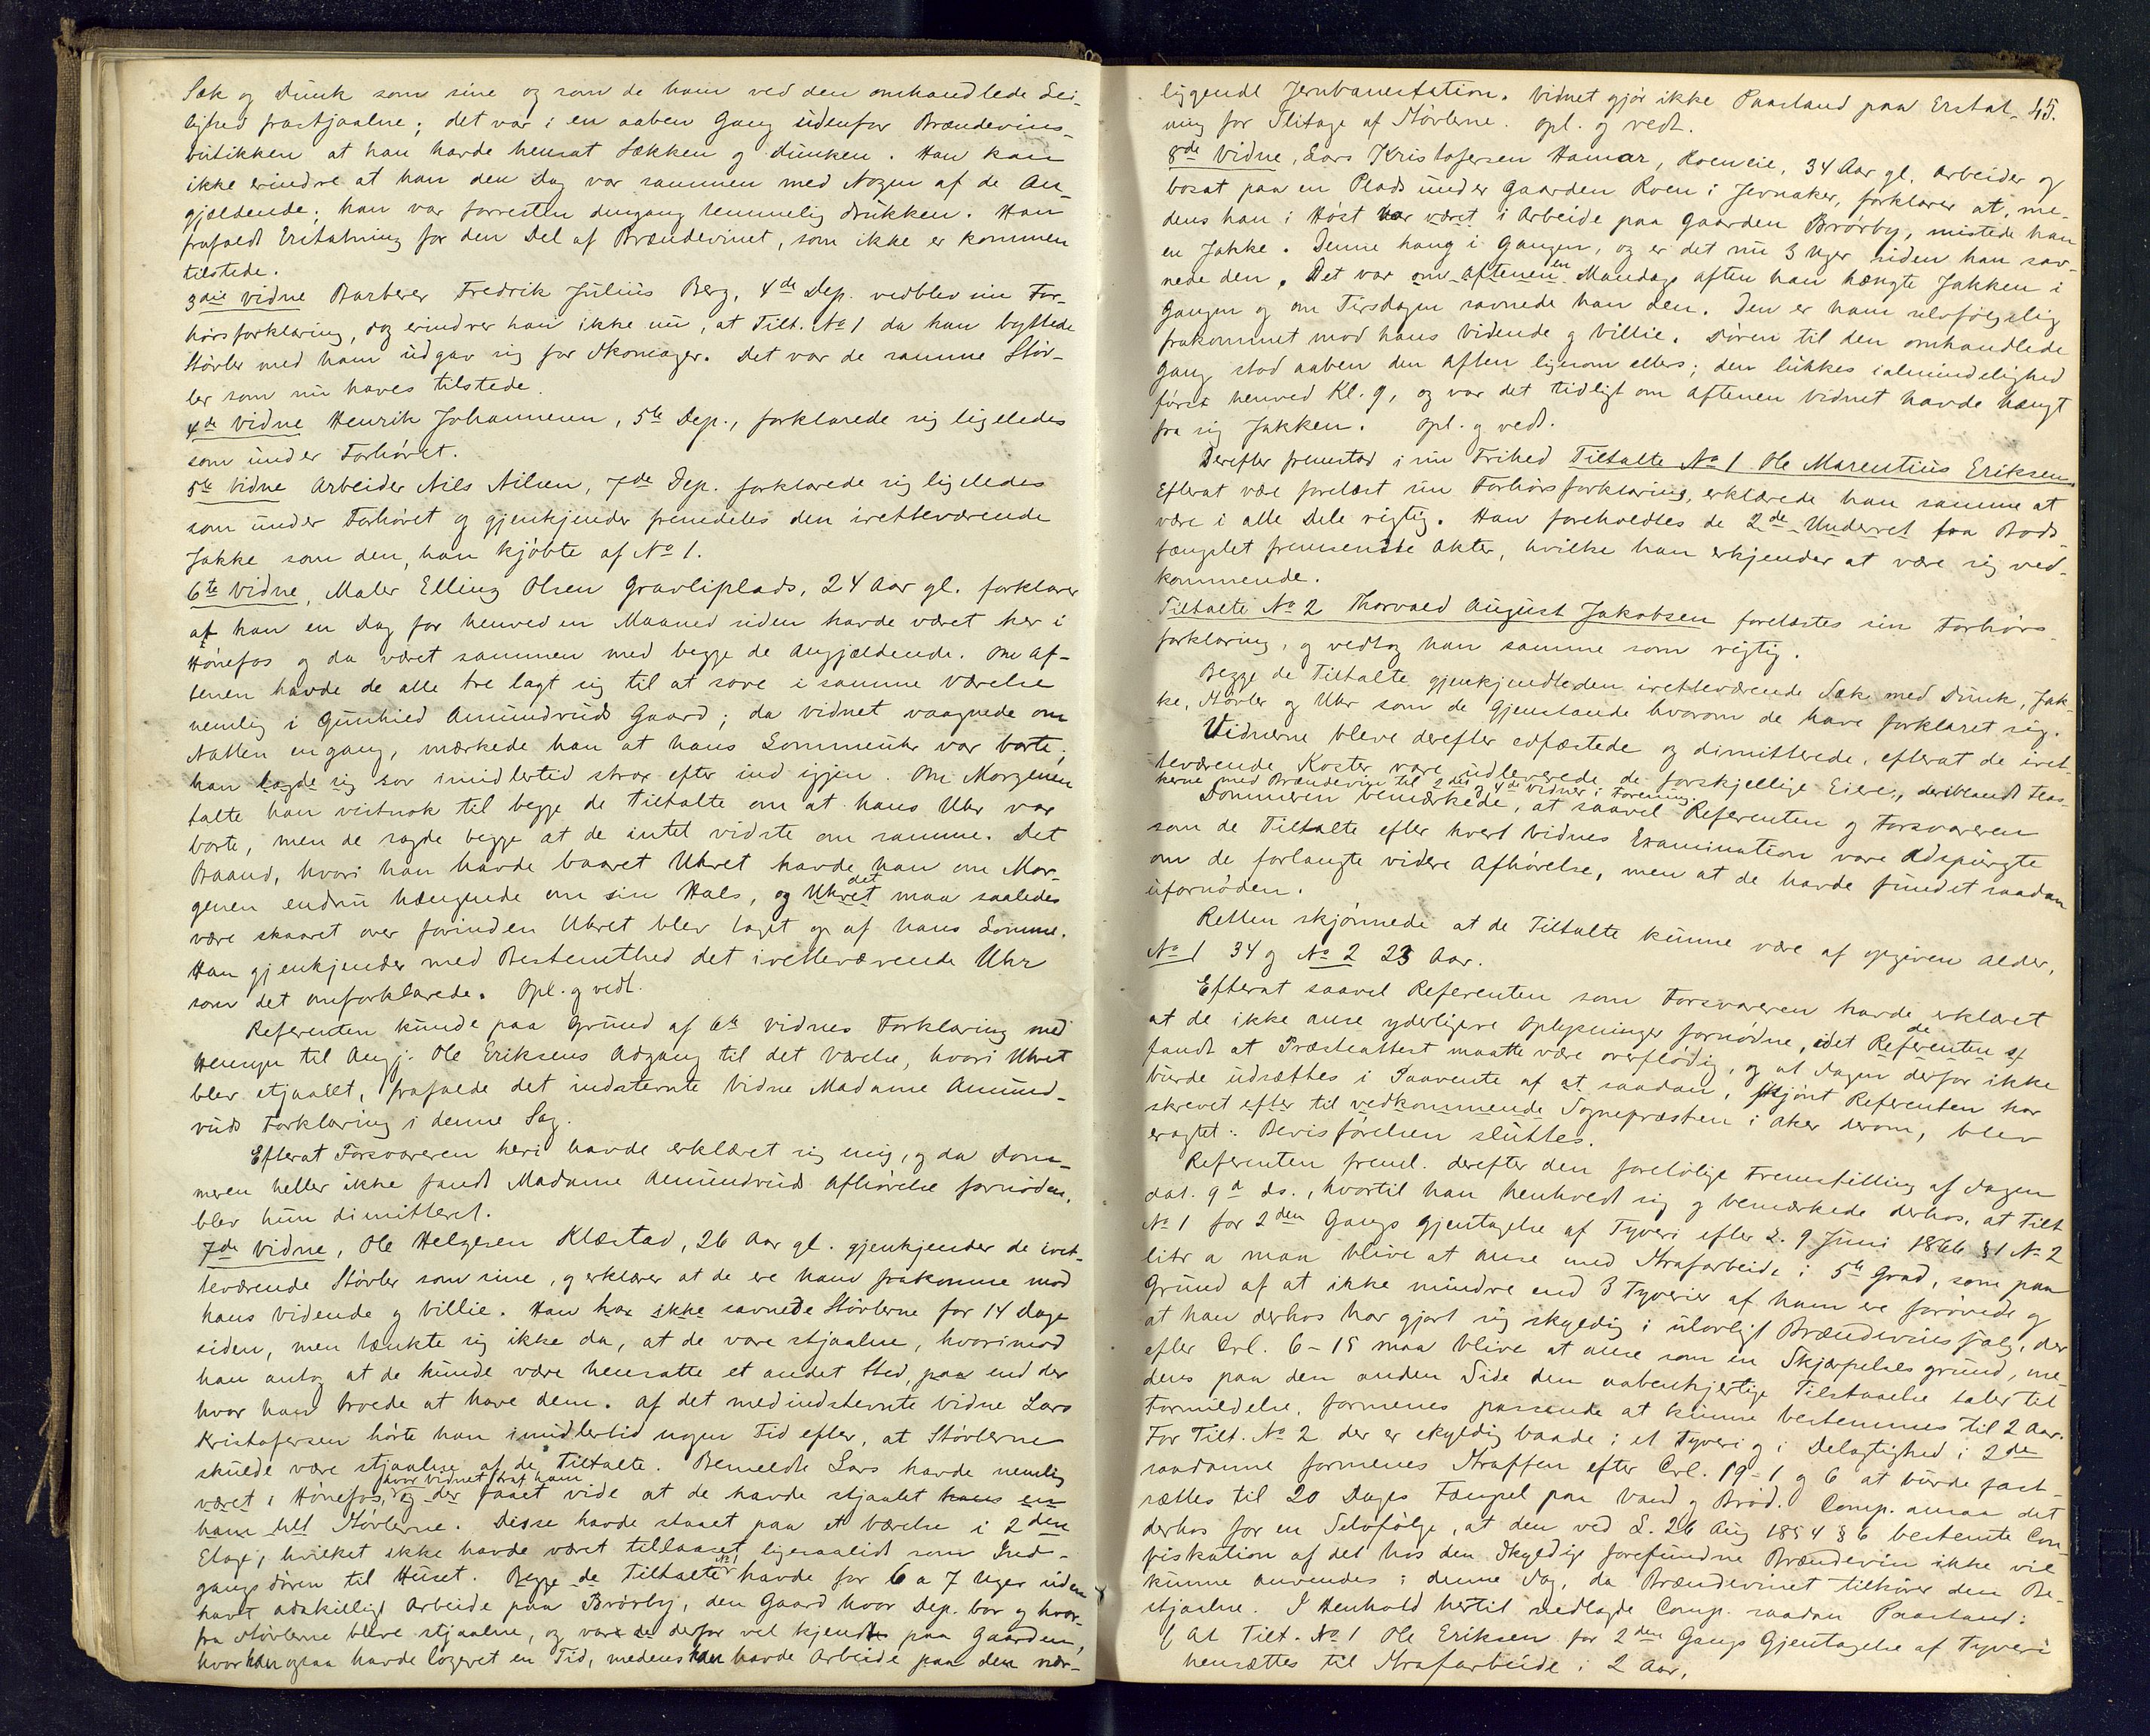 Sæk og Dunk som sine og som de ham ved den omhandlede Lei-
lighed frastjaalne; det var i en aaben Gang udenfor Brændevins-
butikken at han havde hensat Sækken og Dunken. Han kan
ikke erindre at han den Dag var sammen med Nogen af de An-
gjældende; han var forresten dengang temmelig drukken. Han
frafaldt Erstatning for den Del af Brændevinet, som ikke er kommen
tilstede.
3die Vidne Barberer Fredrik Julius Berg, 4de Dep. vedblev sin For-
hørsforklaring, dog erindrer han ikke nu, at Tilt. No 1 da han byttede
Støvler med ham udgav sig for Skomager. Det var de samme Støv-
ler som nu haves tilstede.
4de Vidne Henrik Johannesen, 5te Dep., forklarede sig ligeledes
som under Forhøret.
5te Vidne Arbeider Nils Nilsen, 7de Dep. forklarede sig ligeledes
som under Forhøret og gjenkjender fremdeles den iretteværende
Jakke som den, han kjøbte af No 1.
6te Vidne, Maler Elling Olsen Gravliplads, 24 Aar gl. forklarer
at han en Dag for henved en Maaned siden havde været her i
Hønefos og da været sammen med begge de Angjældende. Om Af-
tenen havde de alle tre lagt sig til at sove i samme Værelse
nemlig i Gunhild Amundruds Gaard; da Vidnet vaagnede om
Natten engang, mærkede han at hans Lommeuhr var borte;
han lagde sig sov imidlertid strax efter ind igjen. Om Morgenen
talte han vistnok til begge de Tiltalte om at hans Uhr var
borte, men de sagde begge at de intet vidste om samme. Det
Baand, hvori han havde baaret Uhret havde han om Mor-
genen endnu hængende om sin Hals, og Uhret det maa saaledes
være skaaret over forinden Uhret blev taget op af hans Lomme.
Han gjenkjender med Bestemthed det iretteværende Uhr
som det omforklarede. Opl. og vedt.
Referenten kunde paa Grund af 6te Vidnes Forklaring med
Hensyn til Angj. Ole Eriksens Adgang til det Værelse, hvori Uhret
blev stjaalet, frafalde det indstevnte Vidne Madame Amund-
ruds Forklaring i denne Sag.
Efterat Forsvareren heri havde erklæret sig enig, og da Dom-
meren heller ikke fandt Madame Amundruds Afhørelse fornøden,
blev hun dimitteret.
7de Vidne, Ole Helgesen Klæstad, 26 Aar gl. gjenkjender de iret-
teværende Støvler som sine, og erklærer at de ere ham frakomne mod
hans Vidende og Villie. Han har ikke savnede Støvlerne for 14 Dage
siden, men tænkte sig ikke da, at de vare stjaalne, hvorimod
han antog at de kunde være hensatte et andet Sted, paa end der
hvor han troede at have dem. Af det medindstevnte Vidne Lars
Kristofersen hørte han imidlertid nogen Tid efter, at Støvlerne
skulde være stjaalne af de Tiltalte. Bemeldte Lars havde nemlig
været i Hønefos, hvor Vidnet traf ham og der faaet vide at de havde stjaalet hans en
ham till Støvlerne. Disse havde staaet paa et Værelse i 2den
Etage, hvilket ikke havde været tillaaset ligesaalidt som Ind-
gangsdøren til Huset. Begge de Tiltalte No 1 havde for 6 a 7 Uger siden
havt adskilligt Arbeide paa Brørby, den Gaard hvor Dep. bor og hvor-
fra Støvlerne bleve stjaalne, og vare de derfor vel kjendte paa Gaarden,
hvor han ogsaa havde logeret en Tid, medens han havde Arbeide paa den nær-
45.
liggende Jernbanestation. Vidnet gjør ikke Paastand paa Erstat-
ning for Slitage af Støvlerne. Opl. og vedt.
8de Vidne, Lars Kristofersen Hamar, Roeneie, 34 Aar gl. Arbeider og
bosat paa en Plads under Gaarden Roen i Jevnaker, forklarer at, me-
dens han i Høst har været i Arbeide paa Gaarden Brørby, mistede han
en Jakke. Denne hang i Gangen, og er det nu 3 Uger siden han sav-
nede den. Det var om Aftenen en Mandags aften han hængte Jakken i
Gangen og om Tirsdagen savnede han den. Den er ham selvfølgelig
frakommet mod hans Vidende og Villie. Døren til den omhandlede
Gang stod aaben den Aften ligesom ellers; den lukkes i almindelighed
først henved Kl. 9, og var det tidligt om Aftenen Vidnet havde hængt
fra sig Jakken. Opl. og vedt.
Derefter fremstod i sin Frihed Tiltalte No 1 Ole Marentius Eriksen.
Efterat være forelæst sin Forhørsforklaring, erklærede han samme at
være i alle Dele rigtig. Han foreholdtes de 2de Underret fra Bods-
fængslet fremsendte Akter, hvilke han erkjender at være sig ved-
kommende.
Tiltalte No 2 Thorvald August Jakobsen forelæstes sin Forhørs-
forklaring, og vedtog han samme som rigtig.
Begge de Tiltalte gjenkjendte den iretteværende Sæk med Dunk, Jak-
ke, Støvler og Uhr som de Gjenstande hvorom de have forklaret sig.
Vidnerne bleve derefter edfæstede og dimitterede, efterat de iret-
teværende Koster vare udleverede de forskjellige Eiere, deriblandt
kerne med Brændevin til 2det og 4de Vidner i Forening.
Dommeren bemærkede, at saavel Referenten og Forsvareren
som de Tiltalte efter hvert Vidnes Examination vare adspurgte
om de forlangte videre Afhørelse, men at de havde fundet saadan
ufornøden.
Retten skjønnede at de Tiltalte kunne være af opgiven Alder,
No 1 34 og No 2 23 Aar.
Efterat saavel Referenten som Forsvareren havde erklæret
at de ikke anse yderligere Oplysninger fornødne, idet Referenten de
fandt at Præsteattest maatte være overflødig, og at Sagen derfor ikke
burde udsættes i Paavente af at saadan, skjønt Referenten har
skrevet efter til vedkommende Sognepræsten i Aker derom, blev
eragtet: Bevisførelsen sluttes.
Referenten freml. derefter den foreløbige Fremstilling af Sagen
dat. 9d ds., hvortil han henholdt sig og bemærkede derhos, at Tilt.
No 1 for 2den Gangs Gjentagelse af Tyveri efter L. 9 Juni 1866 § 1 No 2
litr a maa blive at anse med Strafarbeide i 5te Grad, som paa
Grund af at ikke mindre end 3 Tyverier af ham ere forøvede og
at han derhos har gjort sig skyldig i ulovligt Brændevinssalg, der
efter Crl. 6-15 maa blive at anse som en Skjærpelsesgrund, me-
dens paa den anden Side den aabenhjertige Tilstaaelse taler til
Formildelse, formenes passende at kunne bestemmes til 2 Aar.
For Tilt. No 2 der er skyldig baade i et Tyveri og i Delagtighed i 2de
saadanne formenes Straffen efter Crl. 19-1 og 6 at burde fast-
sættes til 20 Dages Fængsel paa Vand og Brød. Comp. ansaa det
derhos for en Selvfølge, at den ved L. 26 Aug 1854 § 6 bestemte Con-
fiskation af det hos den Skyldige forefundne Brændevin ikke vil
kunne anvendes i denne Sag, da Brændevinet tilhører den Be-
stjaalne. I Henhold hertil nedlagde Comp. saadan Paastand:
At Tilt. No 1 Ole Eriksen for 2den Gangs Gjentagelse af Tyveri
hensættes til Strafarbeide i 2 Aar,